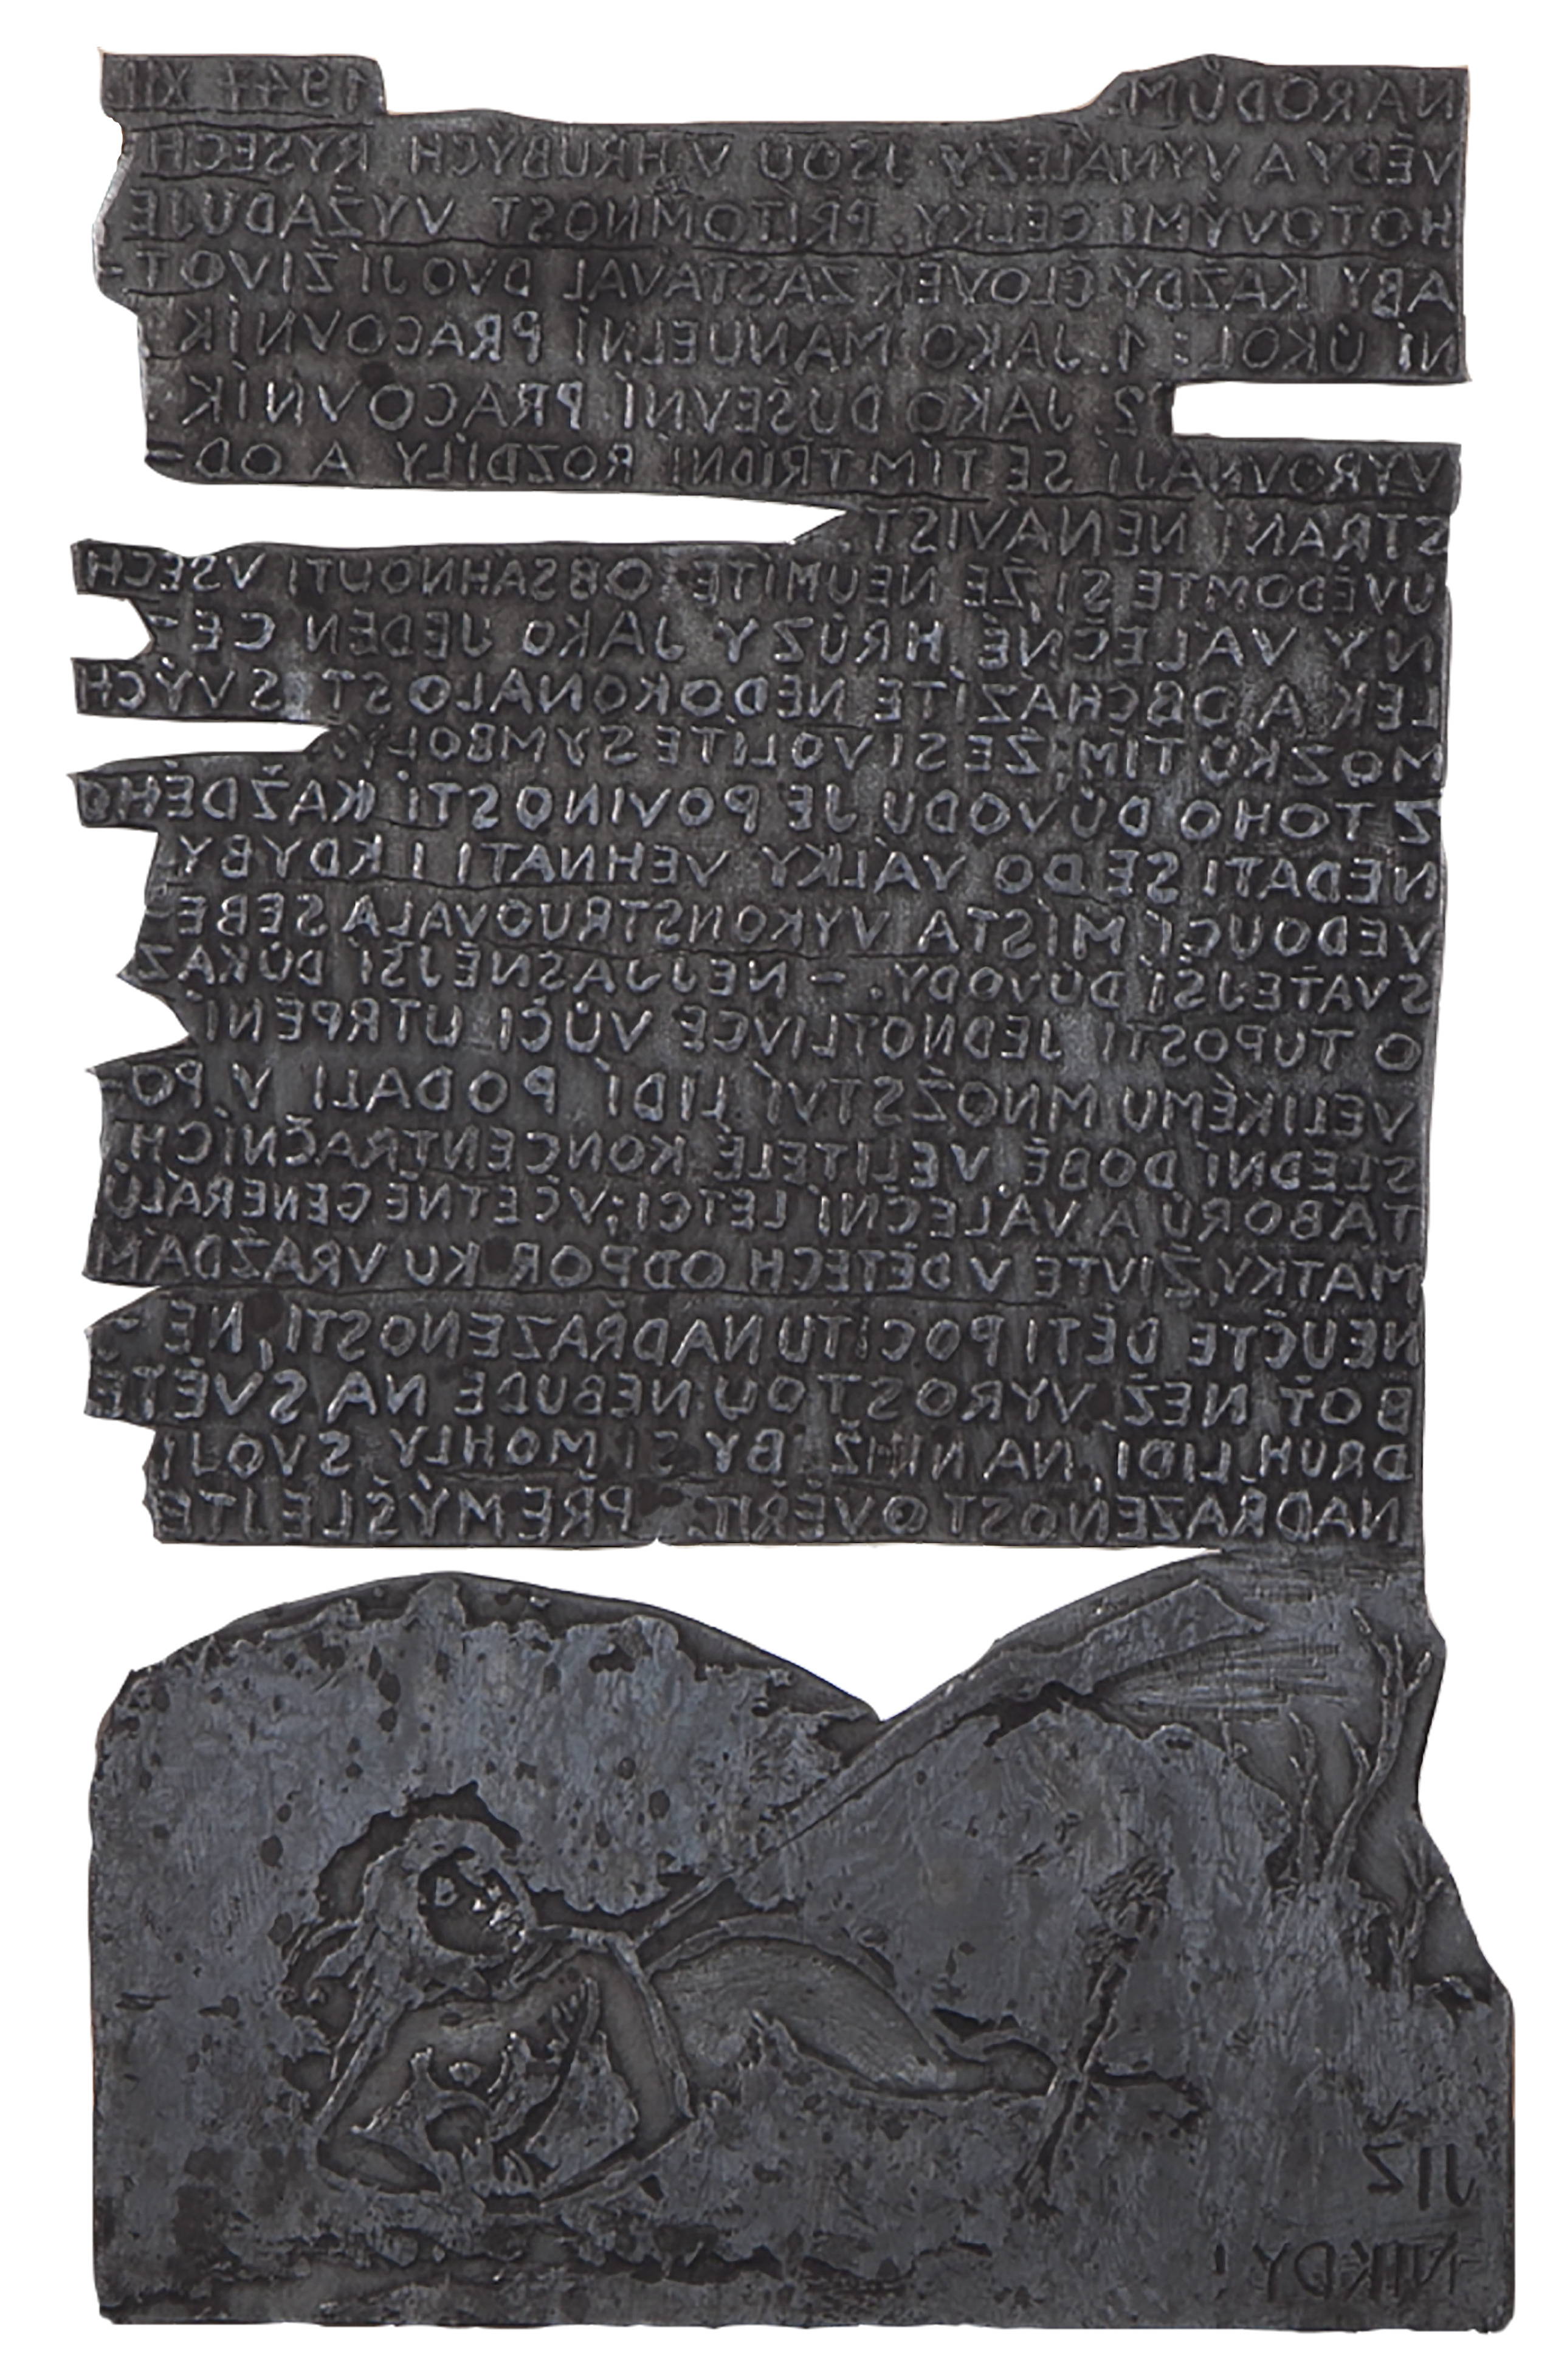 NÁRODŮM. 1947 XII.
VĚDY A VYNÁLEZY JSOU V HRUBÝCH RYSECH
HOTOVÝMI CELKY. PŘÍTOMNOST VYŽADUJE
ABY KAŽDÝ ČLOVĚK ZASTÁVAL DVOJÍ ŽIVOT-
NÍ ÚKOL: 1. JAKO MANUELNÍ PRACOVNÍK
2. JAKO DUŠEVNÍ PRACOVNÍK.
VYROVNAJÍ SE TÍM TŘÍDNÍ ROZDÍLY A OD-
STRANÍ NENÁVIST.
UVĚDOMTE SI, ŽE NEUMÍTE OBSÁHNOUTI VŠECH
NY VÁLEČNÉ HRŮZY JAKO JEDEN CE-
LEK A OBCHÁZÍTE NEDOKONALOST SVÝCH
MOZKŮ TÍM, ŽE SI VOLÍTE SYMBOLY.
Z TOHO DŮVODU JE POVINOSTÍ KAŽDÉHO
NEDATI SE DO VÁLKY VEHNATI I KDYBY
VEDOUCÍ MÍSTA VYKONSTRUOVALA SEBE-
SVATĚJŠÍ DŮVODY. - NEJJASNĚJŠÍ DŮKAZ
O TUPOSTI JEDNOTLIVCE VŮČI UTRPENÍ
VELIKÉMU MNOŽSTVÍ LIDÍ PODALI V PO-
SLEDNÍ DOBĚ VELITELÉ KONCENTRAČNÍCH
TÁBORŮ A VÁLEČNÍ LETCI; VČETNĚ GENERÁLŮ
MATKY, ŽIVTE V DĚTECH ODPOR KU VRAŽDÁM
NEUČTE DĚTI POCITU NADŘAZENOSTI, NE-
BOŤ NEŽ VYROSTOU NEBUDE NA SVĚTĚ
DRUH LIDÍ, NA NIMŽ BY SI MOHLY SVOJI
NADŘAZENOST OVĚŘIT. PŘEMÝŠLEJTE
JIŽ
NIKDY!